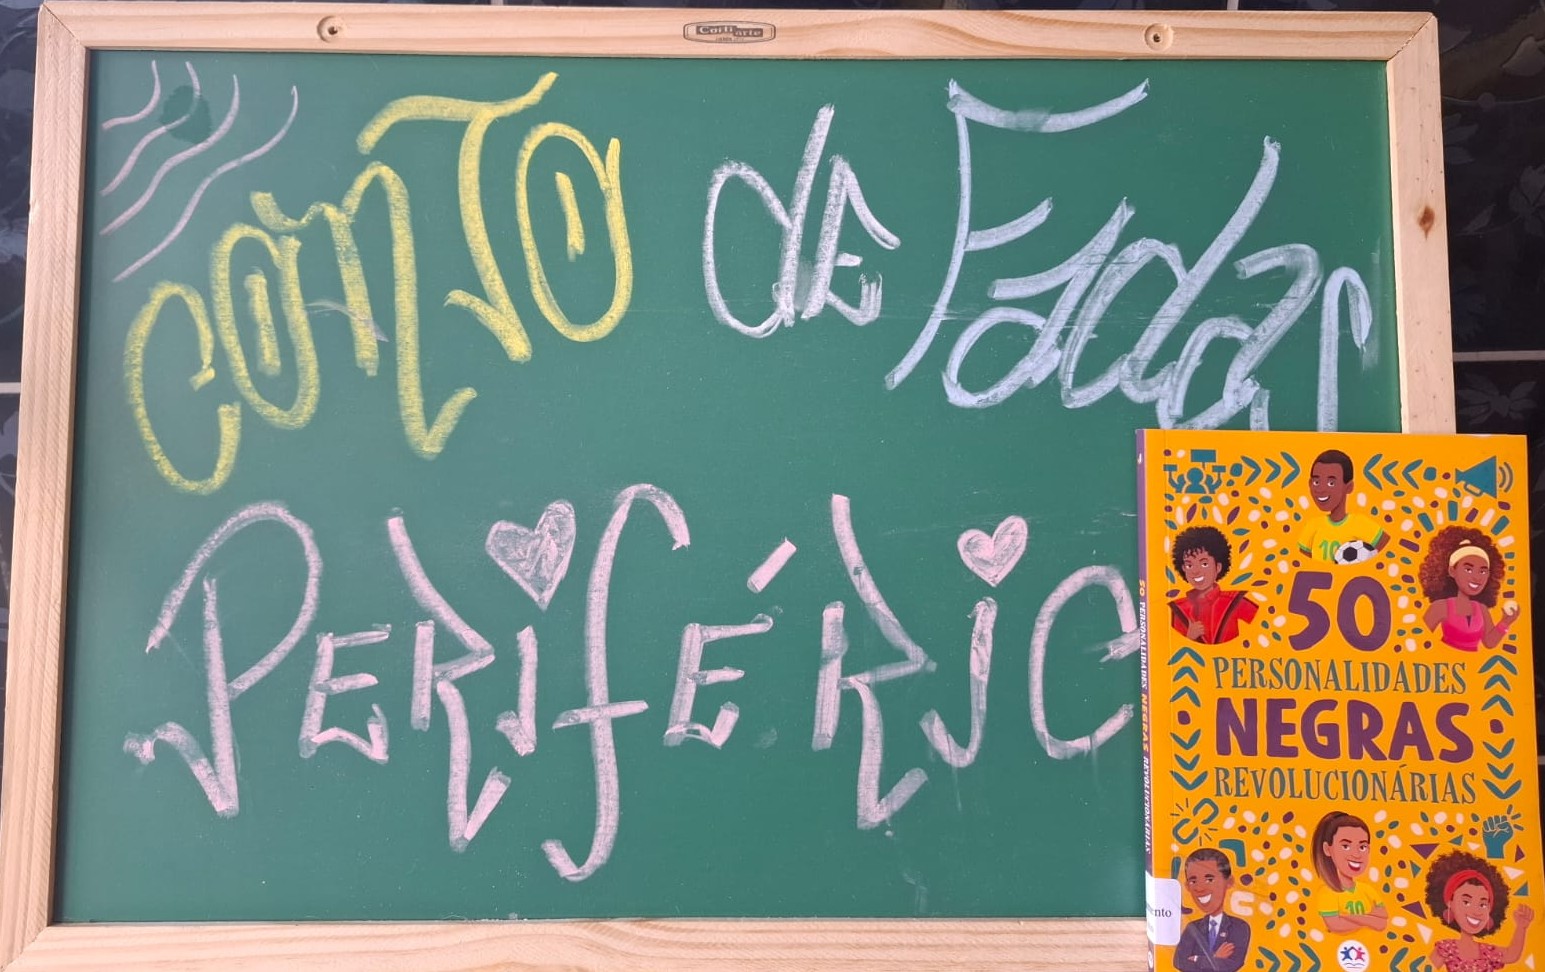 Cortiarte
CONTO dE Fadas
PERifÉRic
50
PERSONALIDADES
NEGRAS
REVOLUCIONÁRIAS
50 PERSONALIDADES NEGRAS REVOLUCIONÁRIAS
10
10